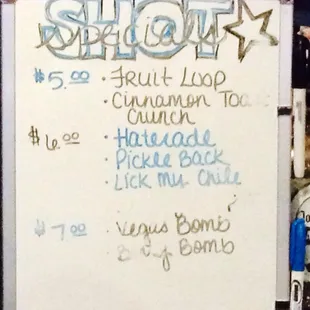 SHOT
specials
$5.00 · Fruit Loop
· Cinnamon Toast
Crunch
$6.00 · Haterade
· Pickle Back
· Lick my Chile
$7.00 · Vegus Bomb
· Bomb